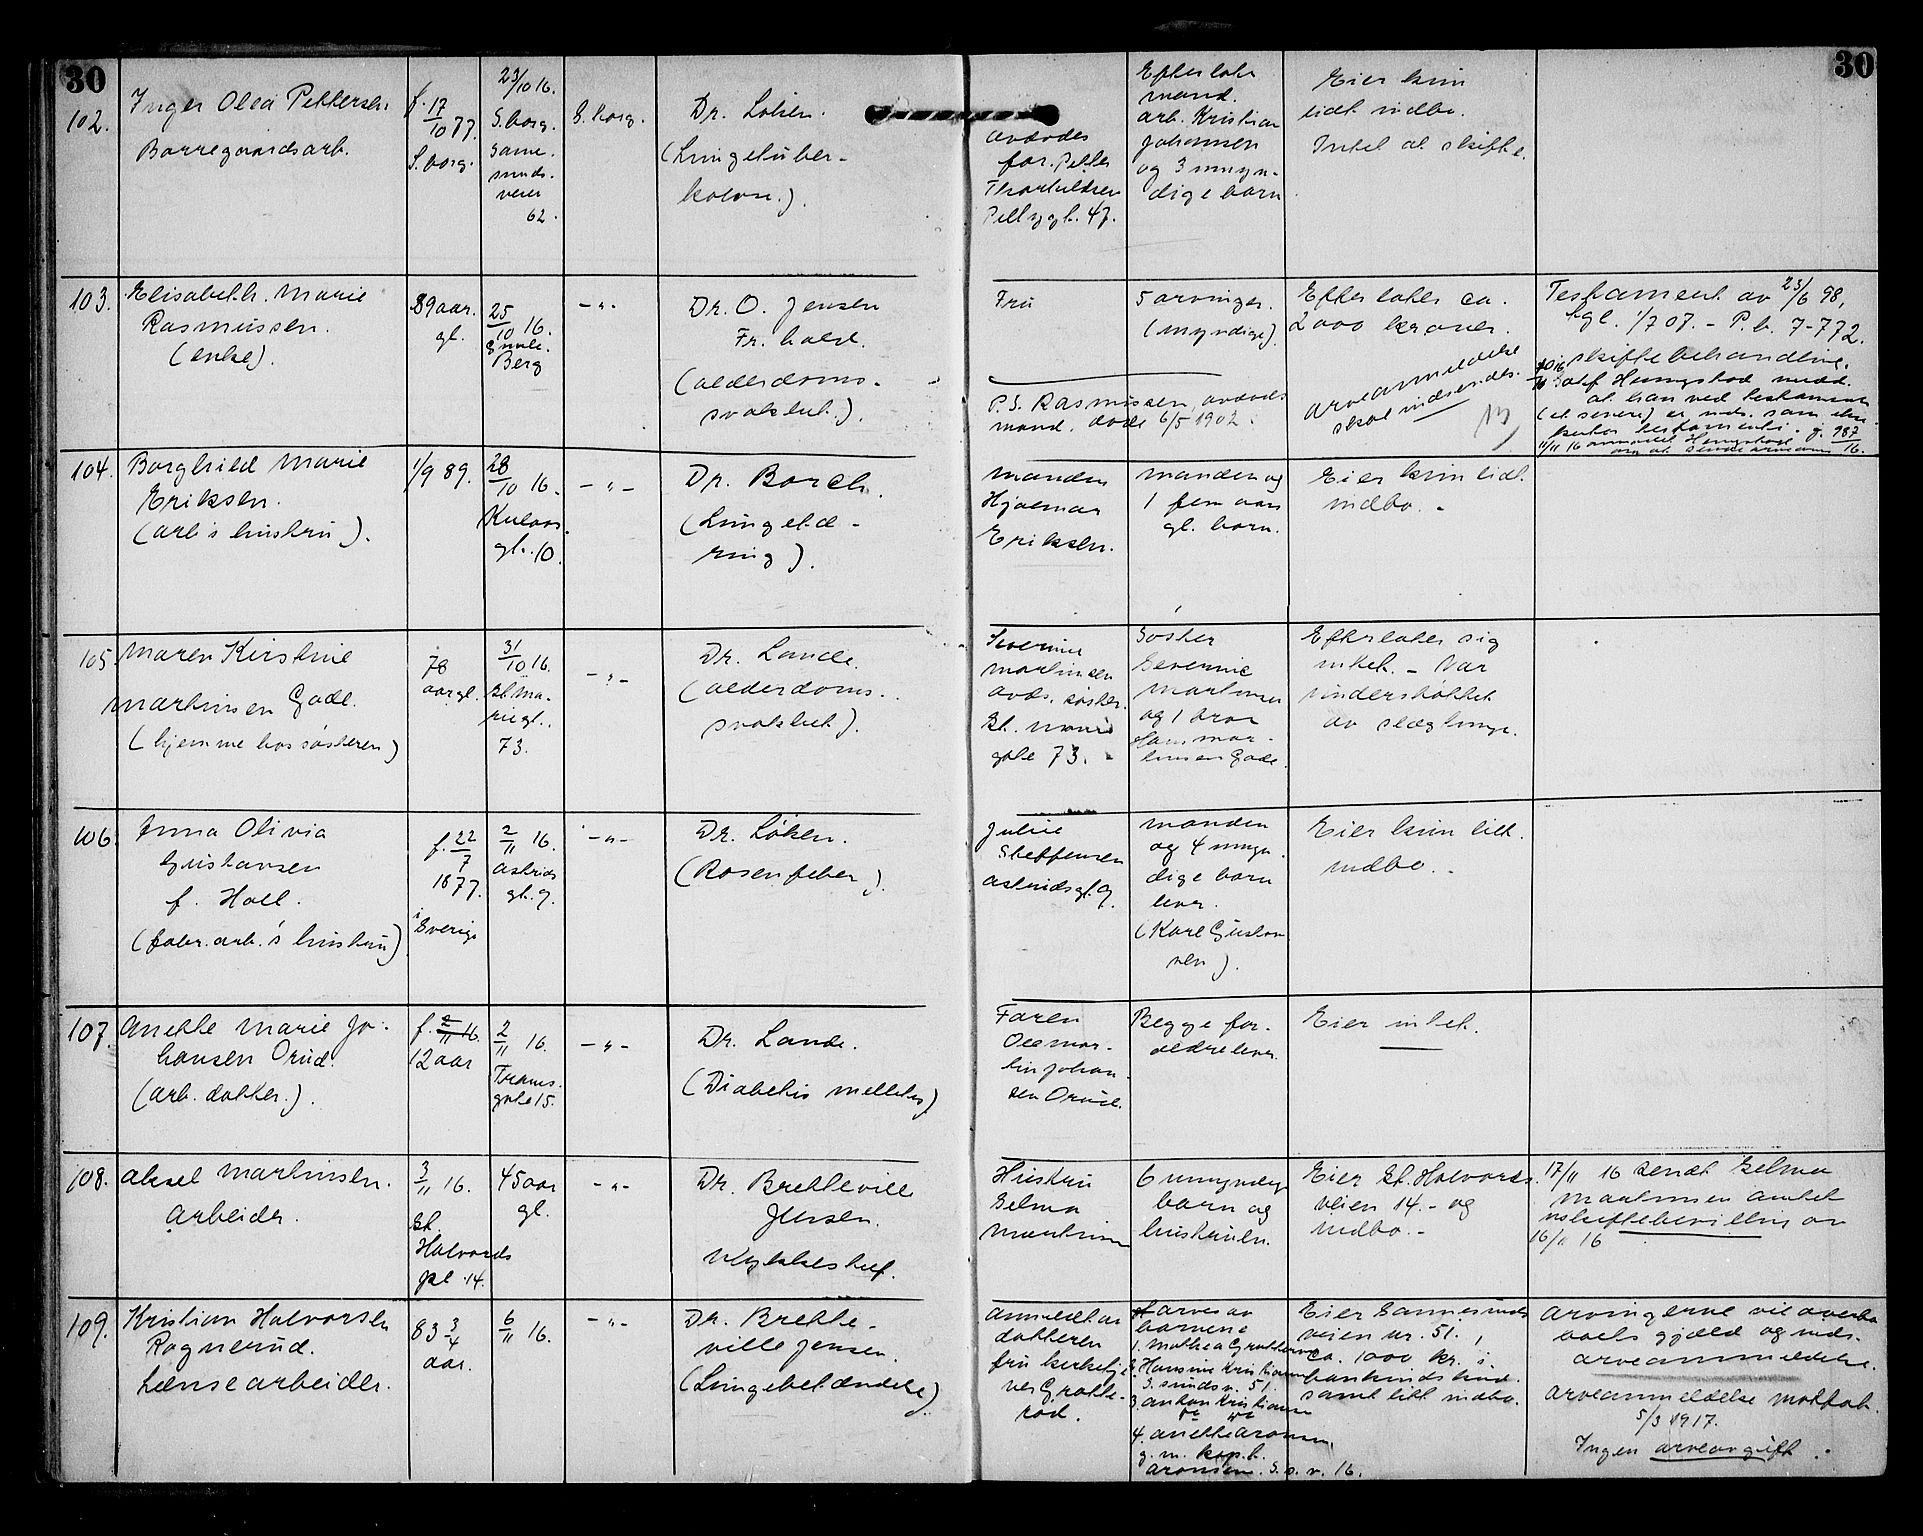 30
30
102.
Inger Olea Pettersen
Borregaardsarb.
f. 17/10 77.
S.borg.
23/10 16.
S.borg.
Sanne-
sunds-
veien
62.
S.borg.
Dr. Løken.
(Lungetuber-
kolose.).
avdødes
far. Petter
Pellyggt. 47.
Efterlater
mand.
arb. Kristian
Johansen
og 3 umyn-
dige barn
Eier kun
lidt indbo.
Intet at skifte.
103.
Elisabeth. Marie
Rasmussen.
(enke).
89 aar.
gl.
25/10 16.
Berg
- " -
Dr. O. Jensen
Fr.hald.
(alderdoms-
svakhet.).
Fru
P. S. Rasmussen, avdødes
mand. døde 6/5 1902.
5 arvinger.
(myndige).
Efterlater ca.
2000 kroner.
arveanmeldelse
skal indsendes.
Testament av 23/6 98,
tgl. 1/7 07. - P.b. 7-772.
skiftebehandling.
at han ved testament
(et senere) er inds. som eks-
kutor testamenti. j. 987/16.
104.
Borghild Marie
Eriksen.
(arb's hustru).
1/9 89.
28/10 16.
gt. 10.
- " -
Dr. Borch.
(Lungetæ-
ring).
manden
Hjalmar
Eriksen.
manden og
1 fem aar
gl. barn.
Eier kun lidt
indbo. -
105
Maren Kirstine
Martinsen Gade.
(hjemme hos søsteren)
78
aar gl.
31/10 16.
St. Ma-
riegt.
73.
- " -
Dr. Lande.
(alderdoms-
svakhet).
Severine
Martinsen
avds. søster.
St. Marie
gate 73. -
Søster
Severine
Martinsen
og 1 bror
Hans Mar-
tinsen Gade.
Efterlater sig
intet. - Var
understøttet
av slægtninge.
106.
Anna Olivia
Gustavsen
f. Holl.
(fabr.arb.'s hustru)
f. 22/7
1877.
i Sverige
2/11 16.
Astrids
gt. 9.
- " -
Dr. Løken.
(Rosenfeber).
Julie
Steffensen
Astridsgt. 9.
manden
og 4 umyn-
dige barn
lever.
(Karl Gustav-
sen).
Eier kun litt
indbo. -
107.
Anette Marie Jo-
hansen Orud.
(arb. datter.).
f. 2/11 16.
12 aar
2/11 16.
gate 15.
- " -
Dr. Lande.
(Diabetis mellitus)
Faren
Ole Mar-
tin Johan-
sen Orud.
Begge for-
ældre lever.
Eier intet.
108.
Aksel Martinsen.
Arbeider.
3/11 16.
St.
Halvards
pl. 14.
45 aar
gl.
- " -
Dr. Bretteville
Jensen.
Ulykkestilf.
Hustru
Selma
Martinsen
6 umyndige
barn og
hustruen.
Eier St. Halvards
veien 14. - og
indbo. -
17/11 16 sendt Selma
Martinsen anket
uskiftebevilling av
16/11 16
109.
Kristian Halvorsen
Rognerud.
Lensearbeider.
83 3/4
aar.
6/11 16.
- " -
Dr. Brette-
ville Jensen.
(Lungebetændelse).
anmeldt av
datteren
fru kirketje-
ner Grotte-
rød.
arves av
barnene
1. Mathea Grotterød
2. Hansine Kristiansen
S.sundsv. 51.
3. Anton Kristiansen
4. Anette Aronsen,
g. m. kap.b.
Aronsen. S.s.v. 16.
Eier Sannesunds
veien nr. 51.,
ca. 1000 kr. i
bankindskud.
samt litt indbo.
Arvingerne vil overta
boets gjæld og inds.
arveanmeldelse.
Arveanmeldelse mottat.
5/3 1917.
Ingen arveavgift.